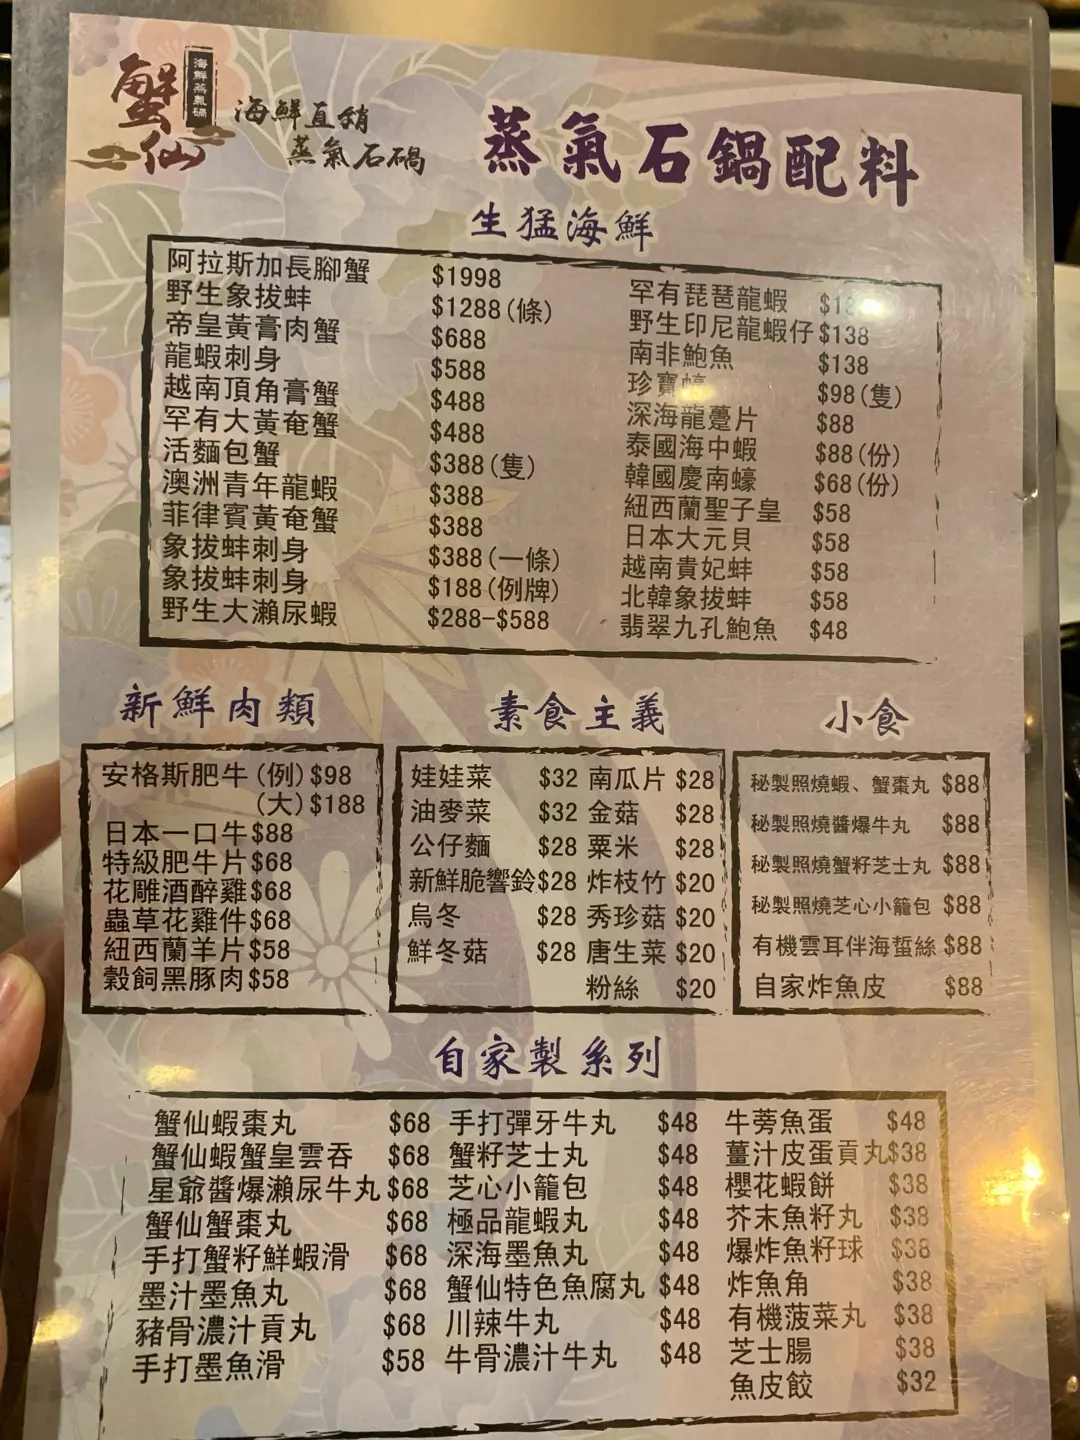 蟹仙
海鮮蒸氣鍋
海鮮直銷
蒸氣石鍋
蒸氣石鍋配料
生猛海鮮
阿拉斯加長腳蟹 $1998
野生象拔蚌 $1288(條)
帝皇黃膏肉蟹 $688
龍蝦刺身 $588
越南頂角膏蟹 $488
罕有大黃奄蟹 $488
活麵包蟹 $388(隻)
澳洲青年龍蝦 $388
菲律賓黃奄蟹 $388
象拔蚌刺身 $388(一條)
象拔蚌刺身 $188(例牌)
野生大瀨尿蝦 $288-$588
罕有琵琶龍蝦
野生印尼龍蝦仔 $138
南非鮑魚 $138
珍寶 $98(隻)
深海龍躉片 $88
泰國海中蝦 $88(份)
韓國慶南蠔 $68(份)
紐西蘭聖子皇 $58
日本大元貝 $58
越南貴妃蚌 $58
北韓象拔蚌 $58
翡翠九孔鮑魚 $48
新鮮肉類
安格斯肥牛(例)$98
(大)$188
日本一口牛$88
特級肥牛片$68
花雕酒醉雞$68
蟲草花雞件$68
紐西蘭羊片$58
穀飼黑豚肉$58
素食主義
娃娃菜 $32 南瓜片 $28
油麥菜 $32 金菇 $28
公仔麵 $28 粟米 $28
新鮮脆響鈴$28 炸枝竹 $20
烏冬 $28 秀珍菇 $20
鮮冬菇 $28 唐生菜 $20
粉絲 $20
小食
秘製照燒蝦、蟹棗丸 $88
秘製照燒醬爆牛丸 $88
秘製照燒蟹籽芝士丸 $88
秘製照燒芝心小籠包 $88
有機雲耳伴海蜇絲 $88
自家炸魚皮 $88
自家製系列
蟹仙蝦棗丸 $68 手打彈牙牛丸 $48 牛蒡魚蛋 $48
蟹仙蝦蟹皇雲吞 $68 蟹籽芝士丸 $48 薑汁皮蛋貢丸$38
星爺醬爆瀨尿牛丸 $68 芝心小籠包 $48 櫻花蝦餅 $38
蟹仙蟹棗丸 $68 極品龍蝦丸 $48 芥末魚籽丸 $38
手打蟹籽鮮蝦滑 $68 深海墨魚丸 $48 爆炸魚籽球 $38
墨汁墨魚丸 $68 蟹仙特色魚腐丸 $48 炸魚角 $38
豬骨濃汁貢丸 $68 川辣牛丸 $48 有機菠菜丸 $38
手打墨魚滑 $58 牛骨濃汁牛丸 $48 芝士腸 $38
魚皮餃 $32